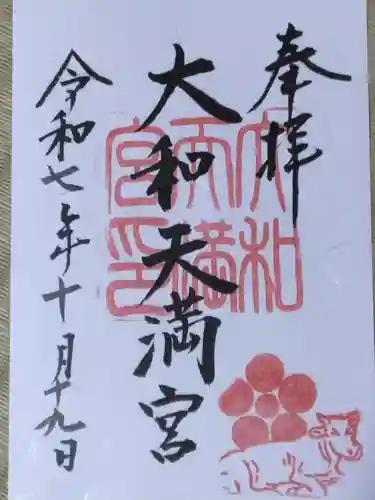 奉拝
大和天満宮
令和七年十月十九日
大和天満宮印